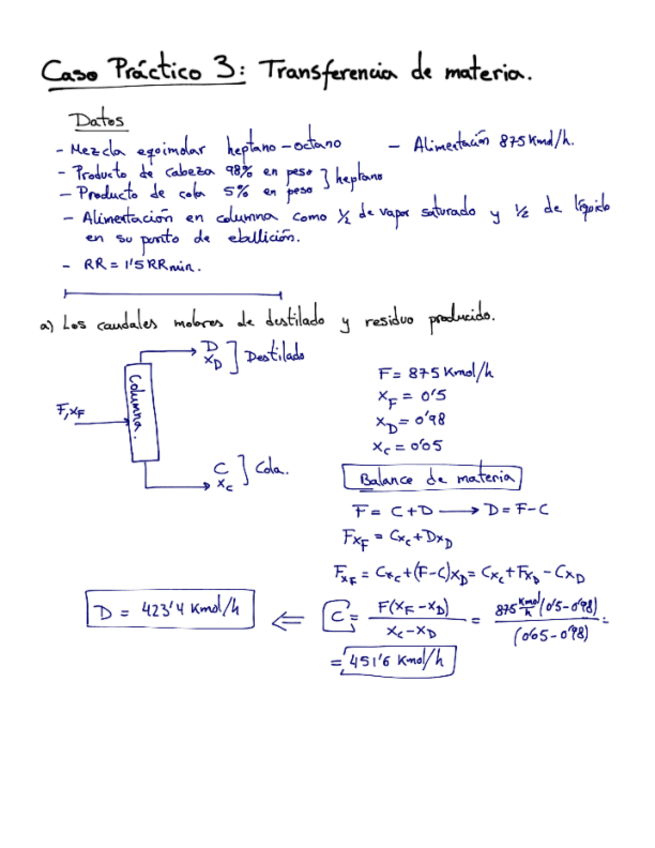 Caso Práctico 3: Transferencia de materia.
Datos
- Mezcla equimolar heptano-octano - Alimentación 875 Kmol/h.
- Producto de cabeza 98% en peso } heptano
- Producto de cola 5% en peso
- Alimentación en columna como ½ de vapor saturado y ½ de líquido
en su punto de ebullición.
- RR = 1'5 RRmin.
a) Los caudales molares de destilado y residuo producido.
D
xD ] Destilado
Columna.
F, xF
C
xc ] Cola.
F = 875 Kmol/h
xF = 0'5
xD = 0'98
xc = 0'05
Balance de materia
F = C+D → D = F-C
FxF = Cxc + DxD
FxF = Cxc + (F-C)xD = Cxc + FxD - CxD
D = 423'4 Kmol/h ⇐ C = F(xF-xD) / xc-xD = 875 Kmol/h (0'5-0'98) / (0'05-0'98) =
= 451'6 Kmol/h